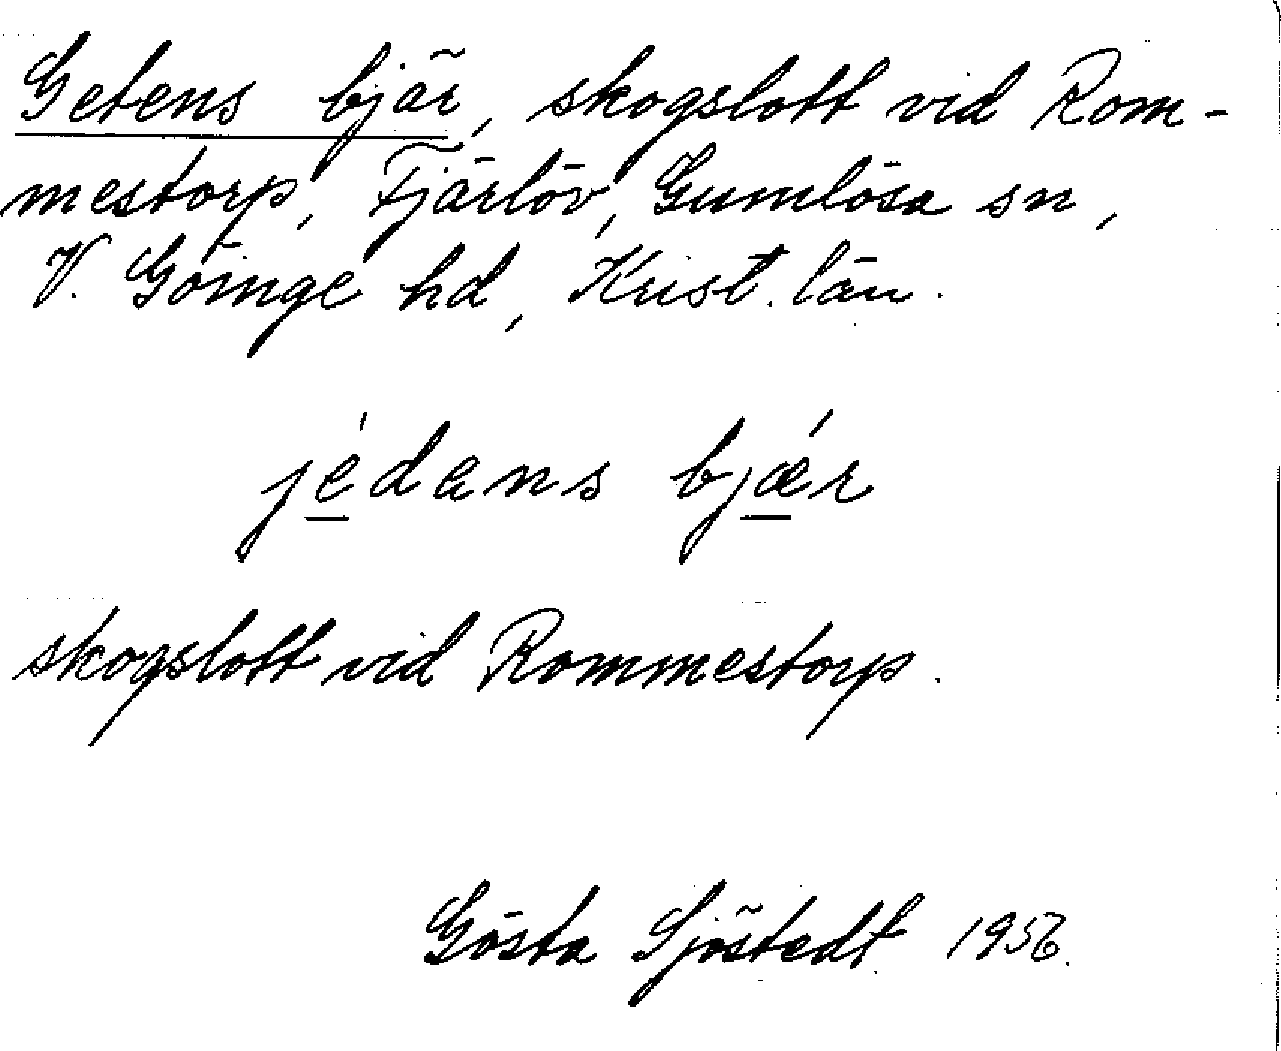 Getens bjär, skogslott vid Rom-
mestorp, Fjärlöv, Gumlösa sn,
V. Göinge hd, Krist. län.
jédens bjǽr
skogslott vid Rommestorp.
Gösta Sjöstedt 1956.